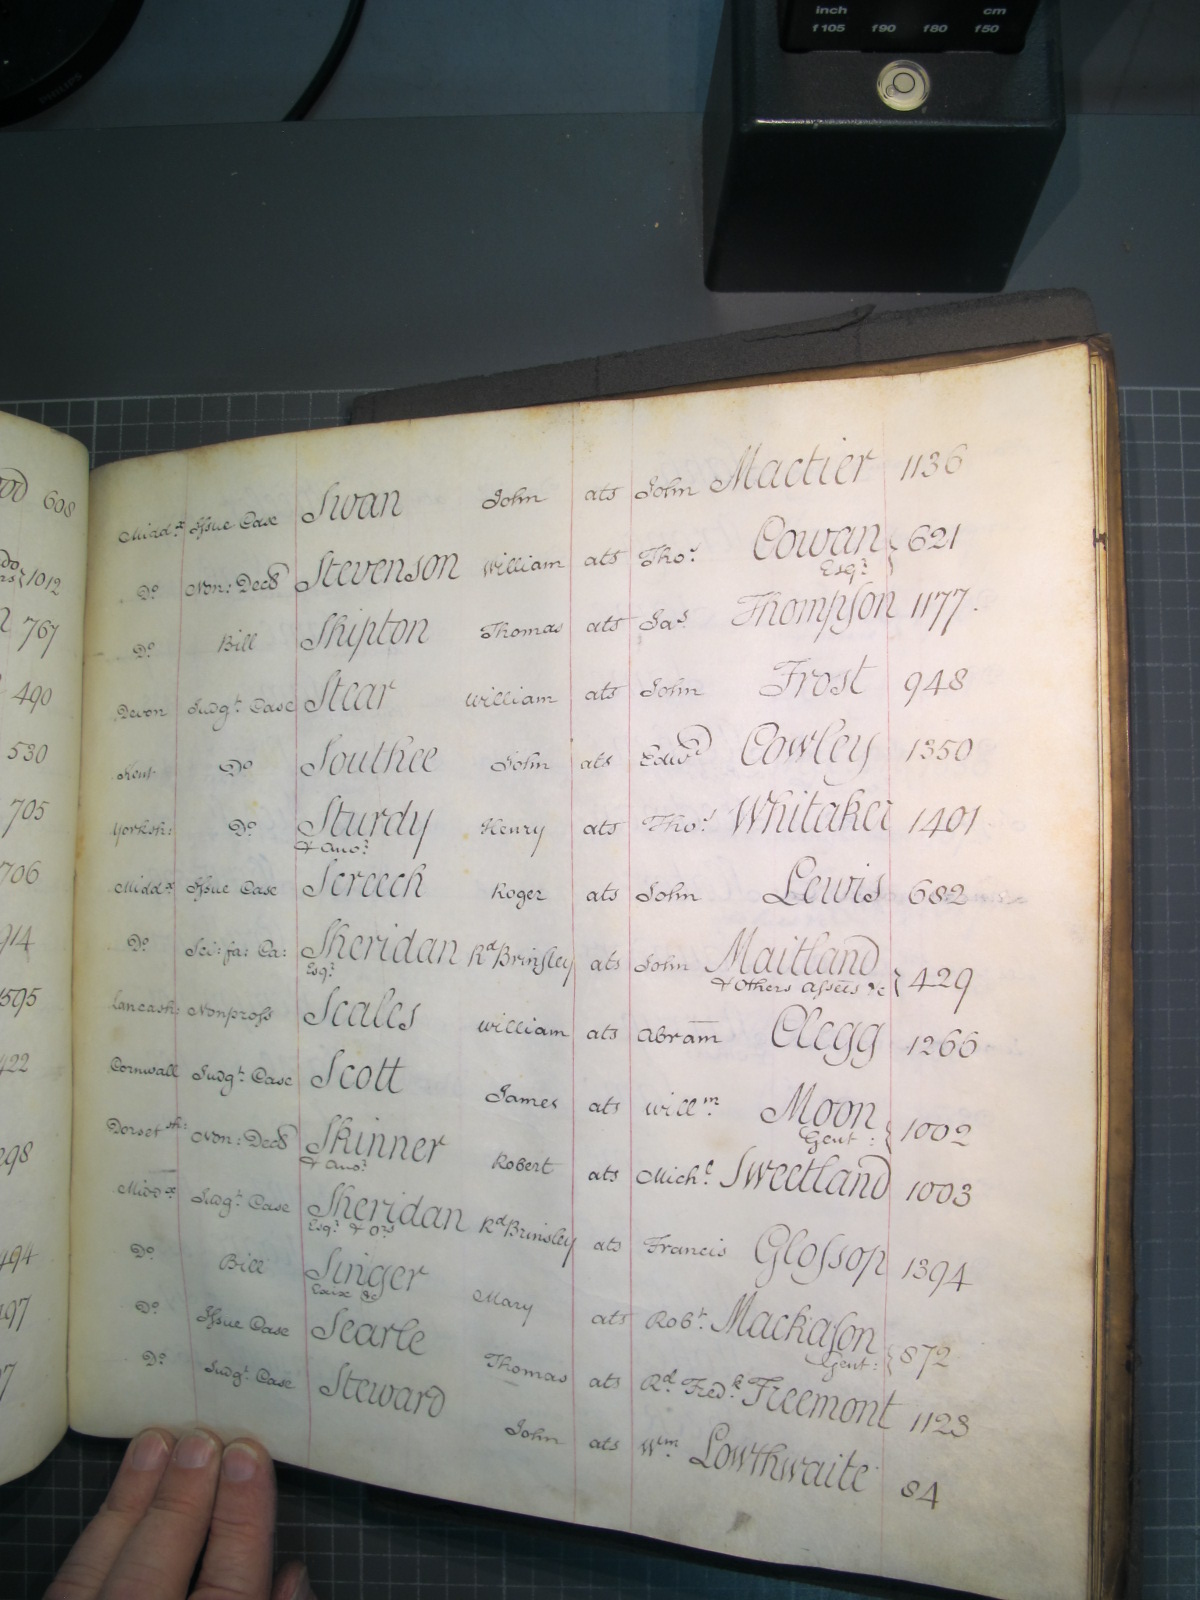 inch cm
f105 f90 f80 f50
PHILIPS
608
1012
767
490
530
705
706
914
595
422
298
494
497
7
Midd.x Issue Case Swan John ats John Mactier 1136
Do. Non: Decd Stevenson William ats Thos. Cowan 621
Esqr.
Do. Bill Skipton Thomas ats Jas. Thompson 1177.
Devon Judgt. Case Stear William ats John Frost 948
Kent Do. Southee John ats Edwd. Cowley 1350
Yorksh: Do. Sturdy Henry ats Thos. Whitaker 1401
& Anor.
Midd.x Issue Case Screech Roger ats John Lewis 682
Do. Sci: fa: Ca: Sheridan Rd Brinsley ats John Maitland 429
Esqr. & Others Assees &c
Lancash: Nonpross Scales William ats Abram Clegg 1266
Cornwall Judgt. Case Scott James ats Willm. Moon 1002
Gent:
Dorsetsh: Non: Decd Skinner Robert ats Michl. Sweetland 1003
& Anor.
Midd.x Judgt. Case Sheridan Rd Brinsley ats Francis Glossop 1394
Esqr. & Ors.
Do. Bill Singer Mary ats Robt. Mackason 872
Exix &c Gent:
Do. Issue Case Searle Thomas ats Rd. Fredk. Freemont 1123
Do. Judgt. Case Steward John ats Wm. Lowthwaite 84